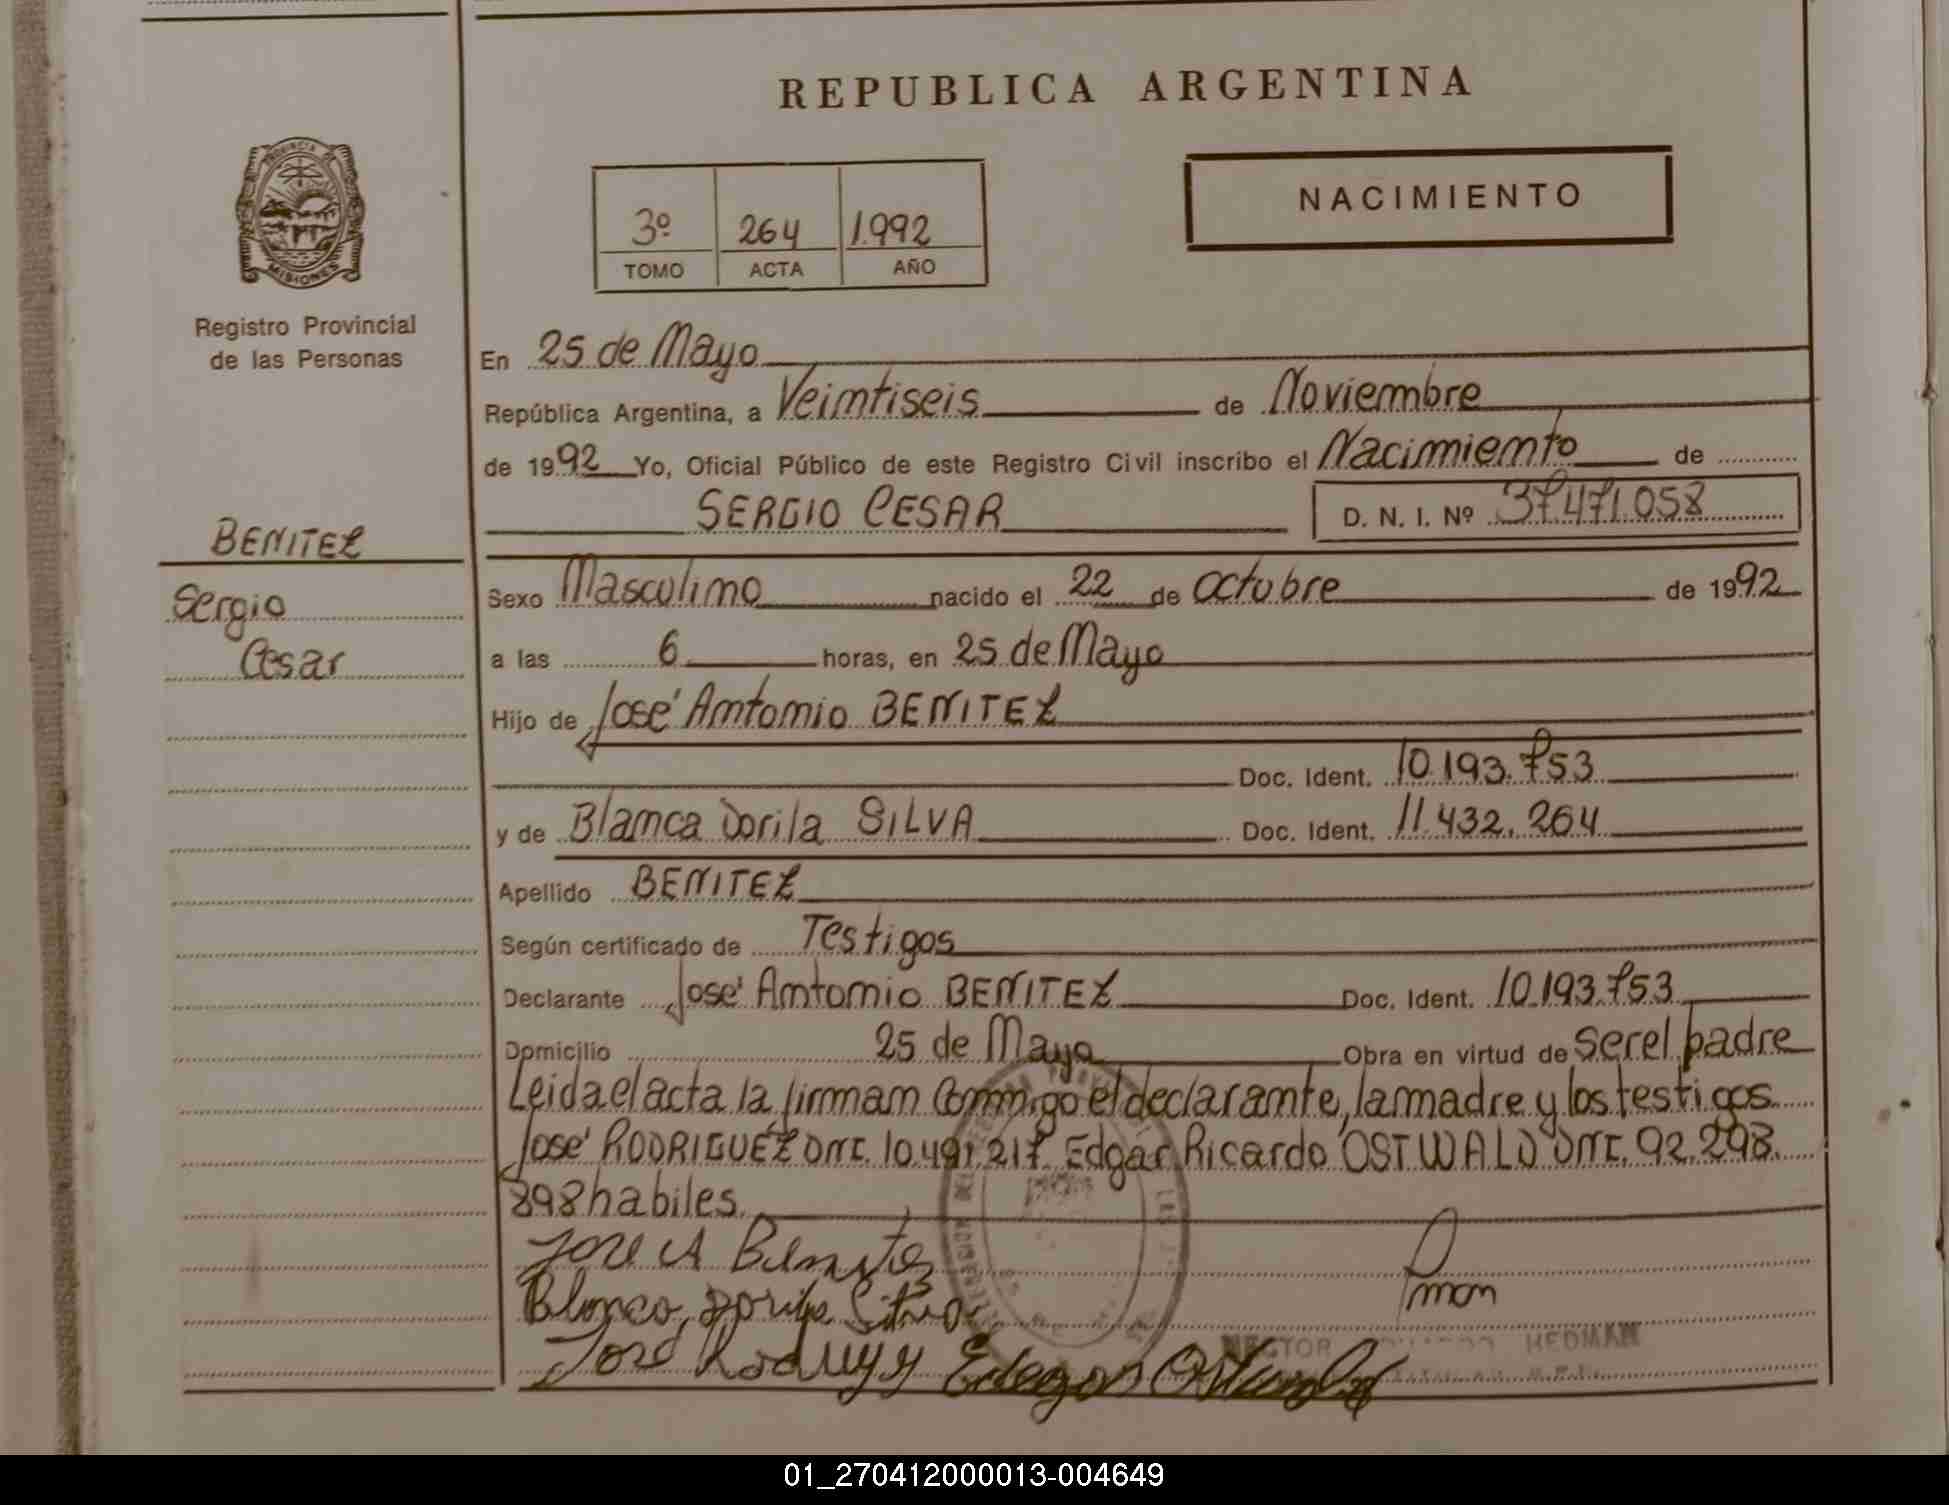 REPUBLICA ARGENTINA
PROVINCIA DE
MISIONES
Registro Provincial
de las Personas
3º 264 1.992
TOMO ACTA AÑO
NACIMIENTO
En 25 de Mayo
República Argentina, a Veintiseis de Noviembre
de 1992 Yo, Oficial Público de este Registro Civil inscribo el Nacimiento de
SERGIO CESAR D. N. I. Nº 37.471.058
BENITEZ
Sergio
Cesar
Sexo Masculino nacido el 22 de octubre de 1992
a las 6 horas, en 25 de Mayo
Hijo de José Antonio BENITEZ
Doc. Ident. 10.193.753
y de Blanca Dorila SILVA Doc. Ident. 11.432.264
Apellido BENITEZ
Según certificado de Testigos
Declarante José Antonio BENITEZ Doc. Ident. 10.193.753
Domicilio 25 de Mayo Obra en virtud de ser el padre
Leida el acta la firman conmigo el declarante, la madre y los testigos
José RODRIGUEZ DNI. 10.491.217 Edgar Ricardo OSTWALD DNI. 92.298.
898 habiles.
Jose A Benitez
Blanca Dorila Silva
José
HECTOR HEDMAN
01_270412000013-004649